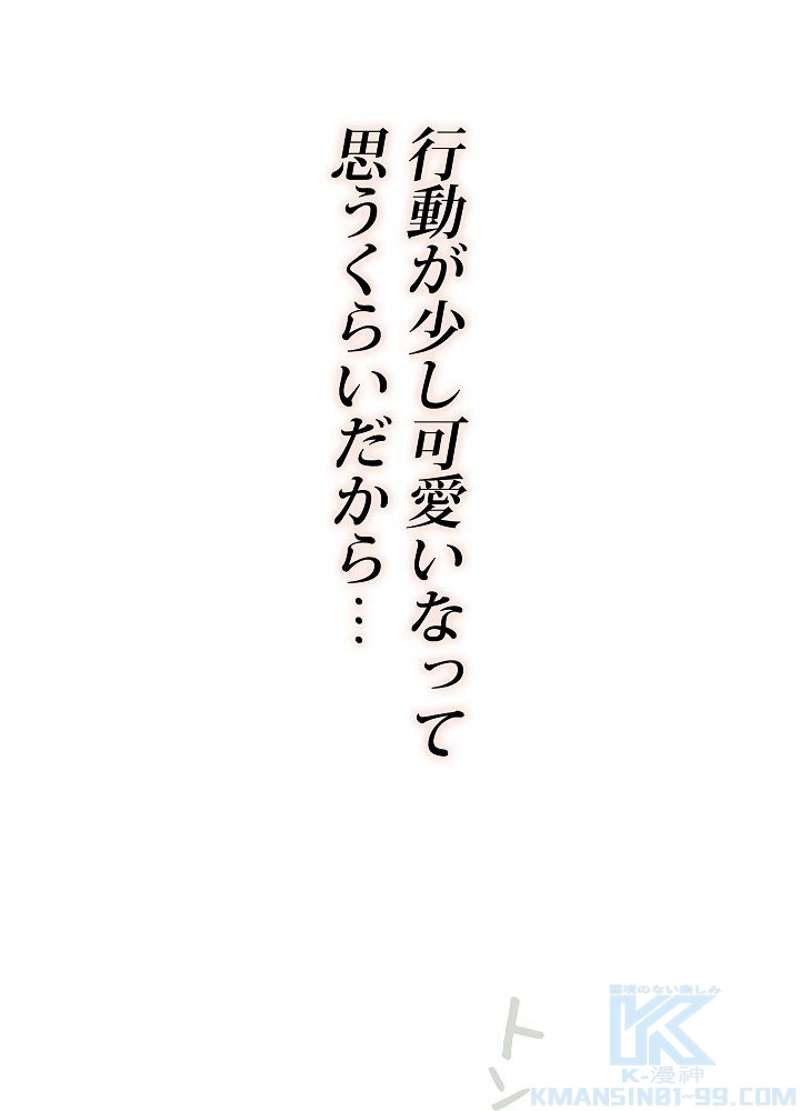 行動が少し可愛いなって
思うくらいだから…
トン
環境のない楽しみ
K
K-漫神
KMANSIN01-99.COM